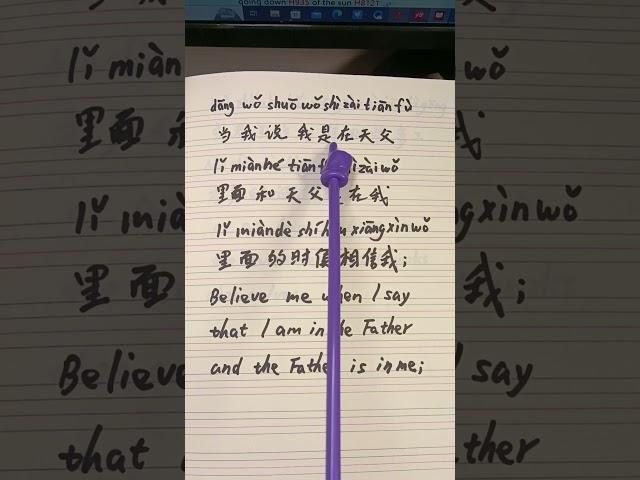 going down H935 of the sun H8121
dāng wǒ shuō wǒ shì zài tiān fù
当我说我是在天父
lǐ miàn hé tiān zài wǒ
里面和天父在我
lǐ miàn dè shí xiāng xìn wǒ
里面的时候相信我;
Believe me when I say
that I am in the Father
and the Father is in me;